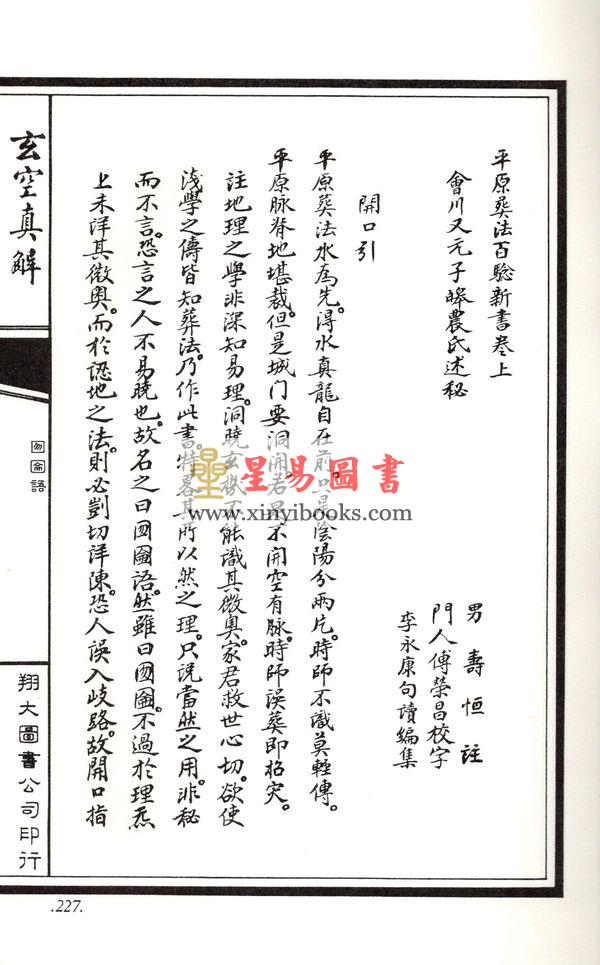 平原葬法百驗新書卷上
會川又元子皞農氏述秘
男壽恒註
門人傅榮昌校字
李永康句讀編集
開口引
平原葬法水為先。得水真龍自在前。只是陰陽分兩片。時師不識莫輕傳。
平原脉脊地堪裁。但是城门要洞開。若是不開空有脉。時師誤葬即招灾。
註地理之學非深知易理。洞曉玄機不能識其微奧。家君救世心切。欲使
淺學之儔皆知葬法。乃作此書。特畧其所以然之理。只說當然之用。非秘
而不言。恐言之人不易曉也。故名之曰囫圇語。然雖曰囫圇。不過於理炁
上未详其微奧。而於認地之法。則必剴切詳陳。恐人误入歧路。故開口指
玄空真解
囫圇語
翔大圖書公司印行
.227.
星易圖書
www.xinyibooks.com